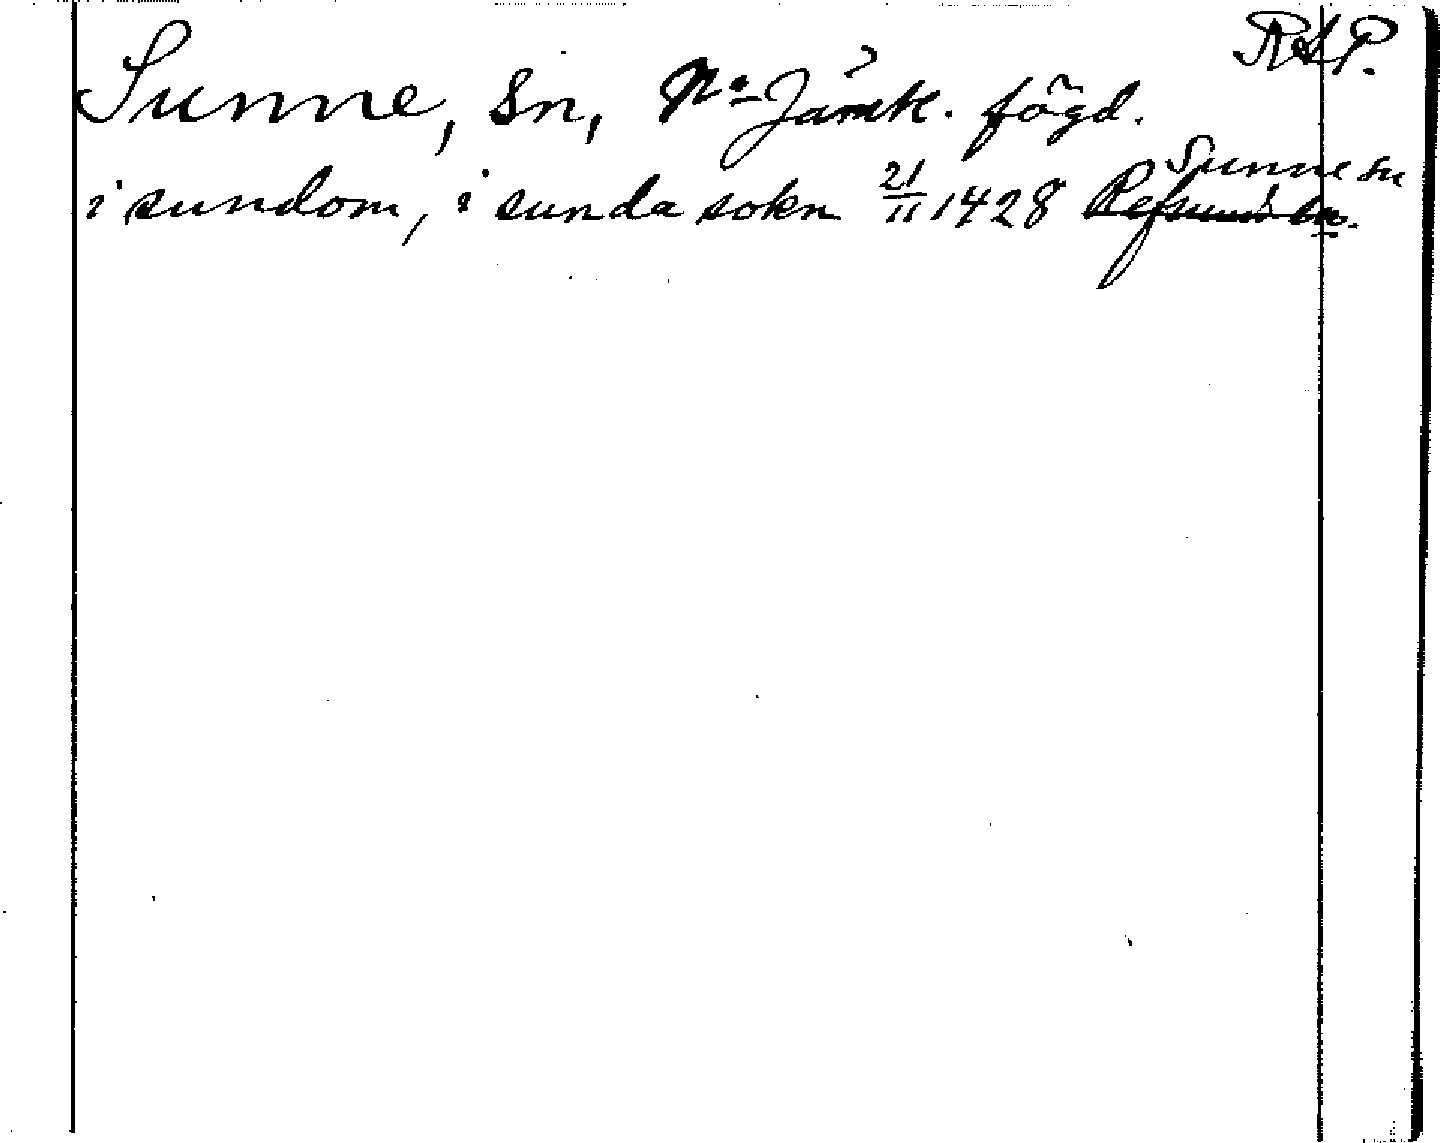 RAP.
Sunne, Sn, No Jämtl. fögd.
Sunne sn
i sundom, i sunda sokn 21/11 1428 Refsunds sn.